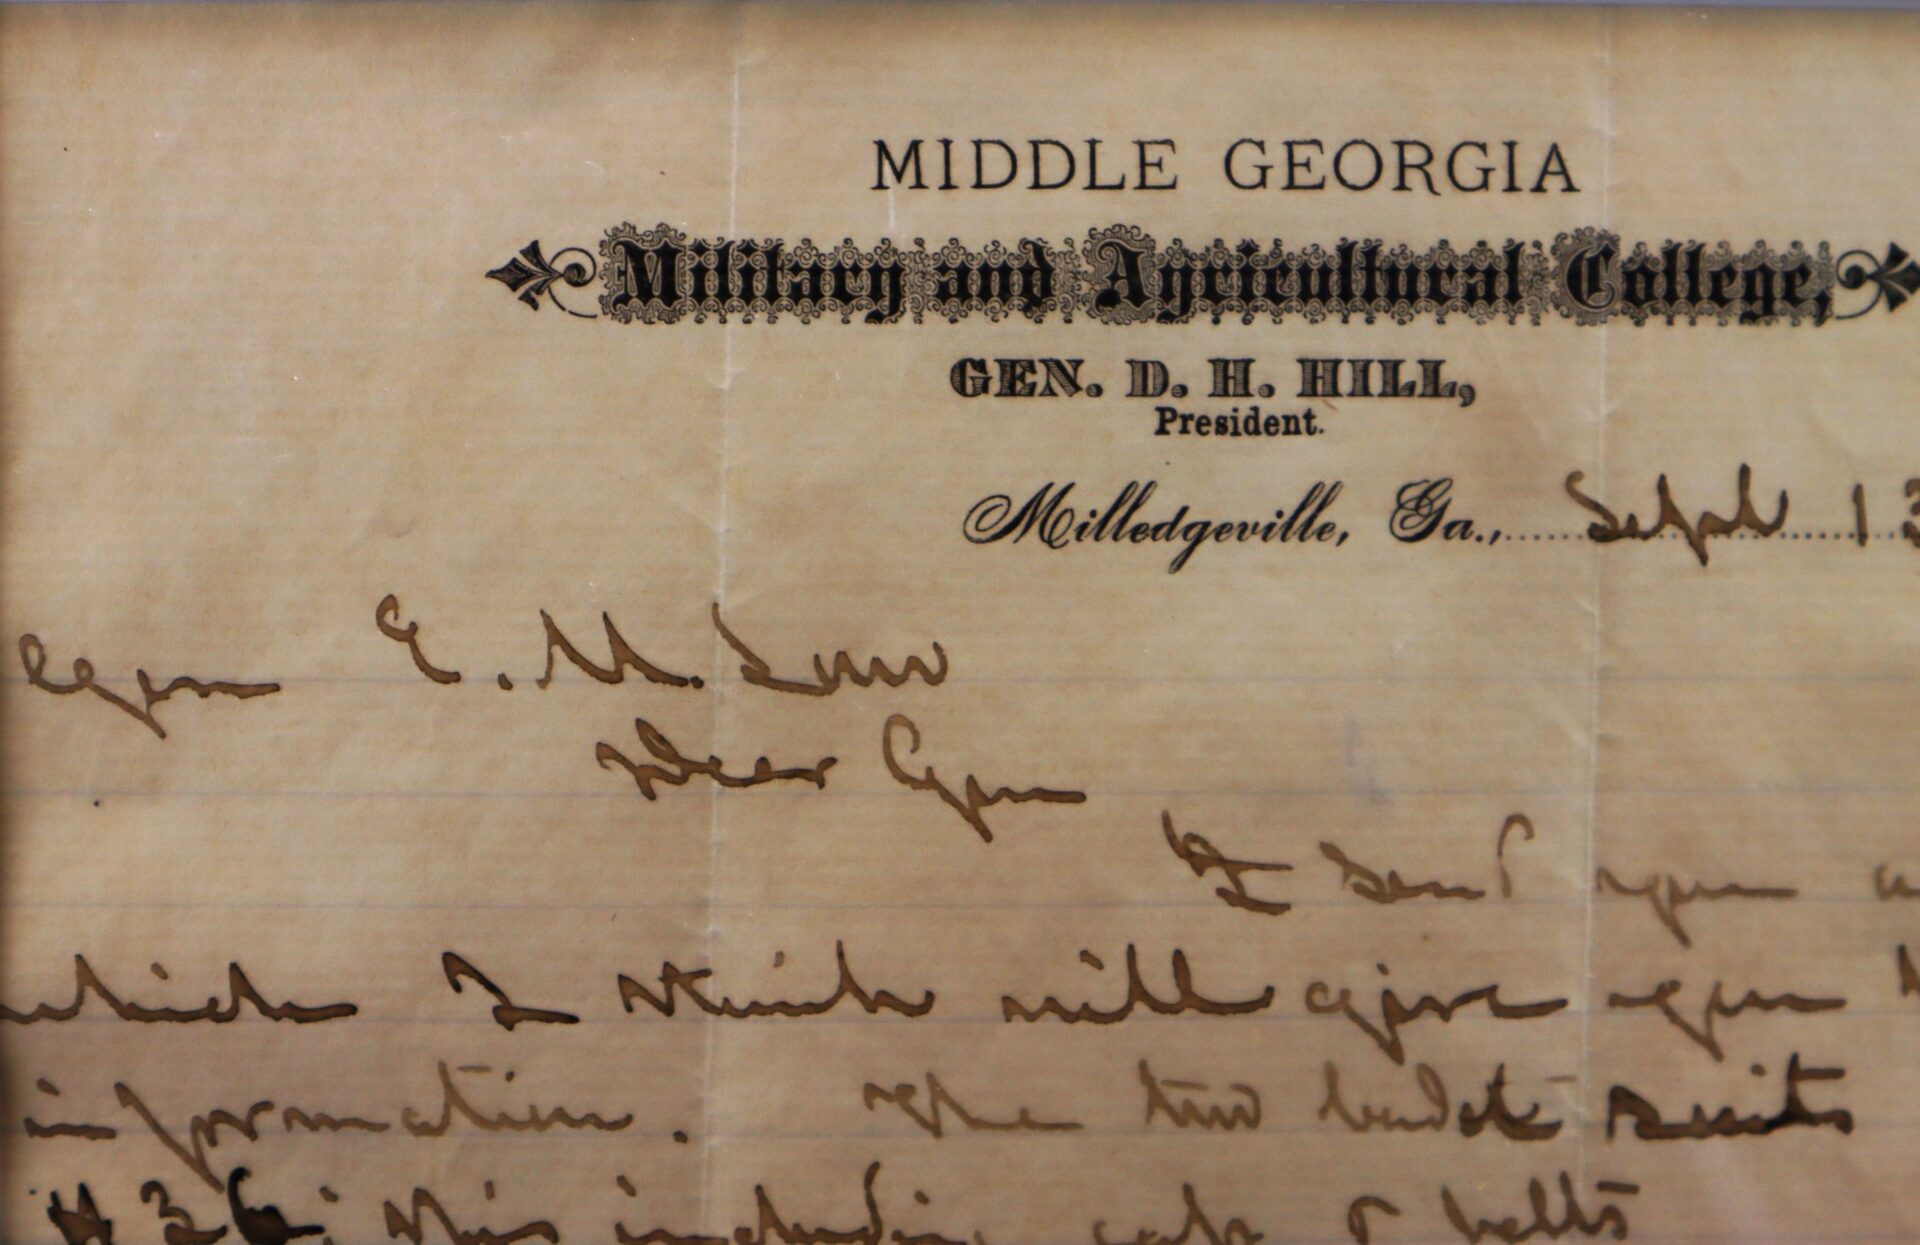 MIDDLE GEORGIA
Military and Agricultural College,
GEN. D. H. HILL,
President.
Milledgeville, Ga., Sept 13
Gen E. M. Law
Dear Gen
I send you
which I think will give you
information. The two cadet suits
$36, this includes caps & belts